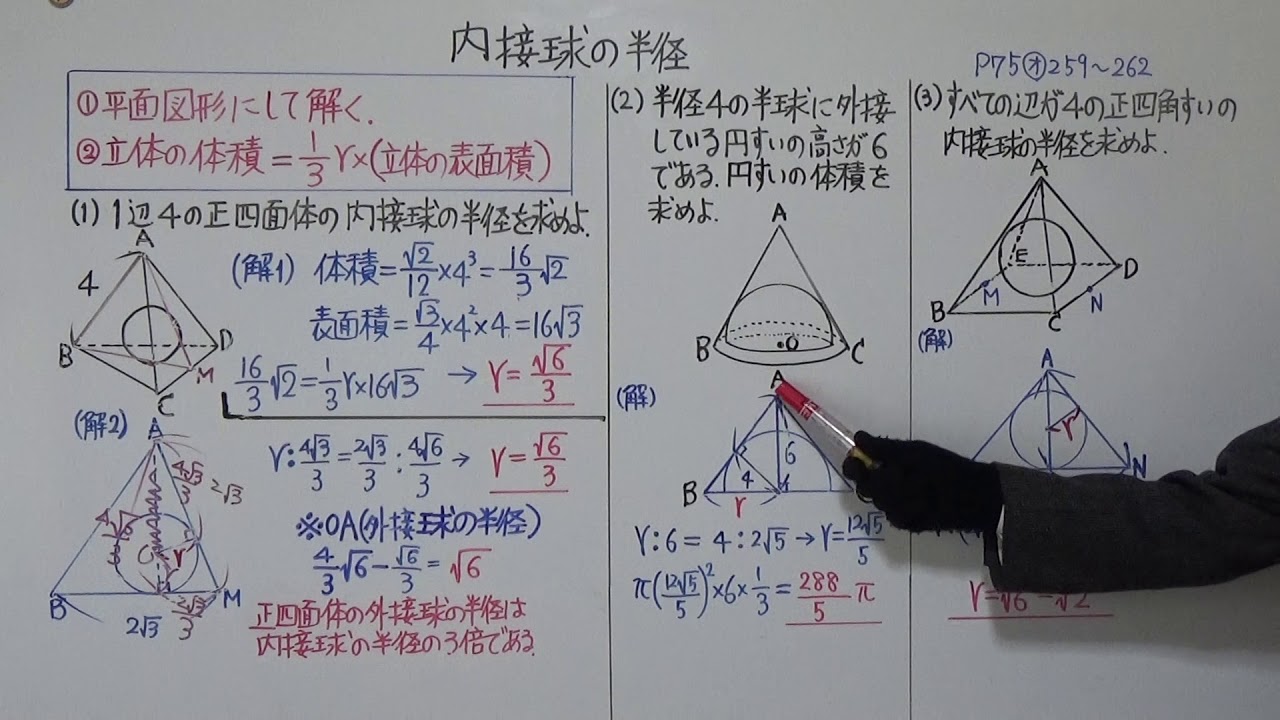 内接球の半径
P75㋔259〜262
①平面図形にして解く.
②立体の体積=1/3 r×(立体の表面積)
(1) 1辺4の正四面体の内接球の半径を求めよ.
A
4
B
D
M
C
(解1) 体積=√2/12×4³=16/3√2
表面積=√3/4×4²×4=16√3
16/3√2=1/3 r×16√3 → r=√6/3
(解2)
A
4√3/3
2√3
r
B
M
2√3
2√3/3
r:4√3/3=2√3/3:4√6/3→ r=√6/3
※OA(外接球の半径)
4/3√6-√6/3=√6
正四面体の外接球の半径は
内接球の半径の3倍である.
(2) 半径4の半球に外接
している円すいの高さが6
である.円すいの体積を
求めよ.
A
B
O
C
(解)
A
6
4
B
r
r:6=4:2√5→r=12√5/5
π(12√5/5)²×6×1/3=288/5 π
(3)すべての辺が4の正四角すいの
内接球の半径を求めよ.
A
E
D
M
N
B
C
(解)
A
r
N
r=√6-√2